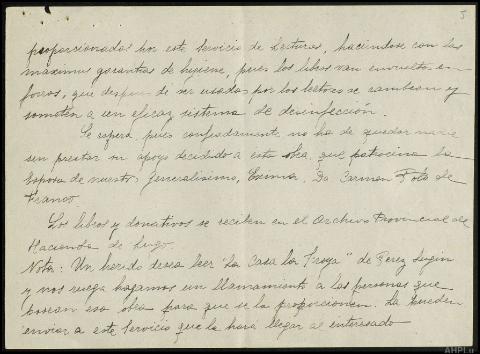 5
proporcionados por este Servicio de Lecturas, haciéndose con las
máximas garantías de higiene, pues los libros van envueltos en
forros, que despues de ser usados por los lectores se cambian y
someten a un eficaz sistema de desinfección.
Se espera pues confiadamente, no ha de quedar nadie
sin prestar su apoyo decidido a esta obra, que patrocina la
Esposa de nuestro Generalísimo, Excma. Da Carmen Polo de
Franco.
Los libros y donativos se reciben en el Archivo Provincial de
Hacienda de Lugo.
Nota: Un herido desea leer "La Casa la Troya" de Perez Lugin
y nos ruega hagamos un llamamiento a las personas que
posean esa obra para que se la proporcionen. La pueden
enviar a este Servicio que la hara llegar al interesado
AHPLu